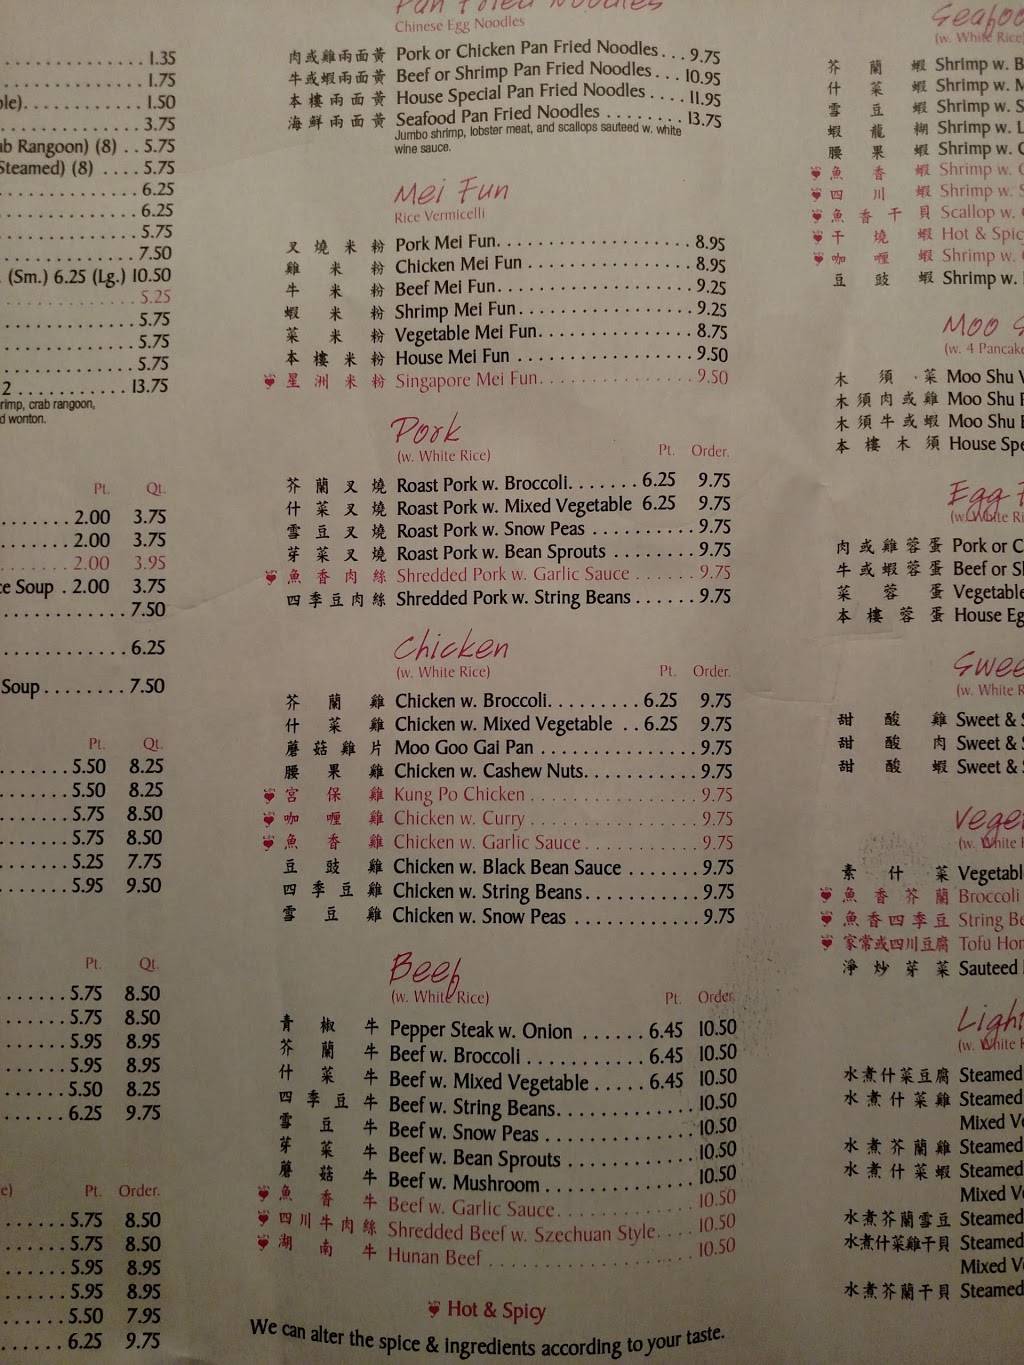 1.35
1.75
1.50
3.75
Rangoon) (8) . . 5.75
Steamed) (8) . . . . 5.75
6.25
6.25
5.75
7.50
(Sm.) 6.25 (Lg.) 10.50
5.25
5.75
5.75
5.75
2 . . . . . . . . . . . . 13.75
crab rangoon,
wonton.
Pt. Qt.
2.00 3.75
2.00 3.75
2.00 3.95
Soup . 2.00 3.75
7.50
6.25
Soup . . . . . . . . 7.50
Pt. Qt.
5.50 8.25
5.50 8.25
5.75 8.50
5.75 8.50
5.25 7.75
5.95 9.50
Pt. Qt.
5.75 8.50
5.75 8.50
5.95 8.95
5.95 8.95
5.50 8.25
6.25 9.75
Pt. Order.
5.75 8.50
5.75 8.50
5.95 8.95
5.95 8.95
5.50 7.95
6.25 9.75
Pan Fried Noodles
Chinese Egg Noodles
肉或雞兩面黃 Pork or Chicken Pan Fried Noodles . . . 9.75
牛或蝦兩面黃 Beef or Shrimp Pan Fried Noodles . . . 10.95
本樓兩面黃 House Special Pan Fried Noodles . . . . 11.95
海鮮兩面黃 Seafood Pan Fried Noodles . . . . . . . . 13.75
Jumbo shrimp, lobster meat, and scallops sauteed w. white
wine sauce.
Mei Fun
Rice Vermicelli
叉燒米粉 Pork Mei Fun. . . . . . . . . . . . . . . . . . 8.95
雞米粉 Chicken Mei Fun . . . . . . . . . . . . . . . 8.95
牛米粉 Beef Mei Fun. . . . . . . . . . . . . . . . . . 9.25
蝦米粉 Shrimp Mei Fun. . . . . . . . . . . . . . . . 9.25
菜米粉 Vegetable Mei Fun. . . . . . . . . . . . . . 8.75
本樓米粉 House Mei Fun . . . . . . . . . . . . . . . . 9.50
星洲米粉 Singapore Mei Fun. . . . . . . . . . . . . . 9.50
Pork
(w. White Rice) Pt. Order.
芥蘭叉燒 Roast Pork w. Broccoli. . . . . . . 6.25 9.75
什菜叉燒 Roast Pork w. Mixed Vegetable 6.25 9.75
雪豆叉燒 Roast Pork w. Snow Peas . . . . . . . . . . 9.75
芽菜叉燒 Roast Pork w. Bean Sprouts . . . . . . . . 9.75
魚香肉絲 Shredded Pork w. Garlic Sauce . . . . . . 9.75
四季豆肉絲 Shredded Pork w. String Beans . . . . . . 9.75
Chicken
(w. White Rice) Pt. Order.
芥蘭雞 Chicken w. Broccoli. . . . . . . . . 6.25 9.75
什菜雞 Chicken w. Mixed Vegetable . . 6.25 9.75
蘑菇雞片 Moo Goo Gai Pan . . . . . . . . . . . . . . . 9.75
腰果雞 Chicken w. Cashew Nuts. . . . . . . . . . . 9.75
宮保雞 Kung Po Chicken . . . . . . . . . . . . . . . . 9.75
咖喱雞 Chicken w. Curry . . . . . . . . . . . . . . . . 9.75
魚香雞 Chicken w. Garlic Sauce . . . . . . . . . . . 9.75
豆豉雞 Chicken w. Black Bean Sauce . . . . . . . 9.75
四季豆雞 Chicken w. String Beans . . . . . . . . . . . 9.75
雪豆雞 Chicken w. Snow Peas . . . . . . . . . . . . 9.75
Beef
(w. White Rice) Pt. Order.
青椒牛 Pepper Steak w. Onion . . . . . . 6.45 10.50
芥蘭牛 Beef w. Broccoli . . . . . . . . . . . 6.45 10.50
什菜牛 Beef w. Mixed Vegetable . . . . . 6.45 10.50
四季豆牛 Beef w. String Beans. . . . . . . . . . . . . 10.50
雪豆牛 Beef w. Snow Peas . . . . . . . . . . . . . . 10.50
芽菜牛 Beef w. Bean Sprouts . . . . . . . . . . . . 10.50
蘑菇牛 Beef w. Mushroom . . . . . . . . . . . . . . 10.50
魚香牛 Beef w. Garlic Sauce. . . . . . . . . . . . . 10.50
四川牛肉絲 Shredded Beef w. Szechuan Style. . . . 10.50
湖南牛 Hunan Beef . . . . . . . . . . . . . . . . . . . 10.50
Hot & Spicy
We can alter the spice & ingredients according to your taste.
Seafoo
(w. White Rice
芥蘭蝦 Shrimp w. B
什菜蝦 Shrimp w. M
雪豆蝦 Shrimp w. S
蝦龍糊 Shrimp w. L
腰果蝦 Shrimp w. C
魚香蝦 Shrimp w. G
四川蝦 Shrimp w. S
魚香干貝 Scallop w. G
干燒蝦 Hot & Spic
咖喱蝦 Shrimp w. C
豆豉蝦 Shrimp w.
Moo S
(w. 4 Pancake
木須菜 Moo Shu V
木須肉或雞 Moo Shu P
木須牛或蝦 Moo Shu B
本樓木須 House Spe
Egg F
(w. White Ri
肉或雞蓉蛋 Pork or C
牛或蝦蓉蛋 Beef or Sh
菜蓉蛋 Vegetable
本樓蓉蛋 House Eg
Swee
(w. White R
甜酸雞 Sweet & S
甜酸肉 Sweet & S
甜酸蝦 Sweet & S
Veget
(w. White R
素什菜 Vegetabl
魚香芥蘭 Broccoli
魚香四季豆 String Be
家常或四川豆腐 Tofu Hom
淨炒芽菜 Sauteed
Light
(w. White R
水煮什菜豆腐 Steamed
水煮什菜雞 Steamed
Mixed Ve
水煮芥蘭雞 Steamed
水煮什菜蝦 Steamed
Mixed Ve
水煮芥蘭雪豆 Steamed
水煮什菜雞干貝 Steamed
Mixed Ve
水煮芥蘭干貝 Steamed